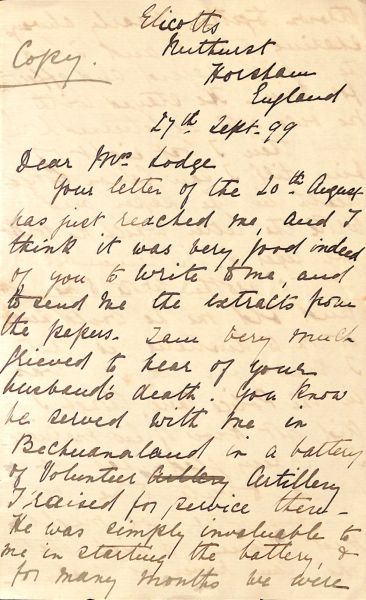 Elicotts
Nuthurst
Copy.
Horsham
England
27th Sept. 99
Dear Mrs Lodge
Your letter of the 20th August
has just reached me, and I
think it was very good indeed
of you to write to me, and
to send me the extracts from
the papers. I am very much
grieved to hear of your
husband's death. You know
he served with me in
Bechuanaland in a battery
of Volunteer Artillery
I raised for service there-
He was simply invaluable to
me in starting the battery, &
for many months we were